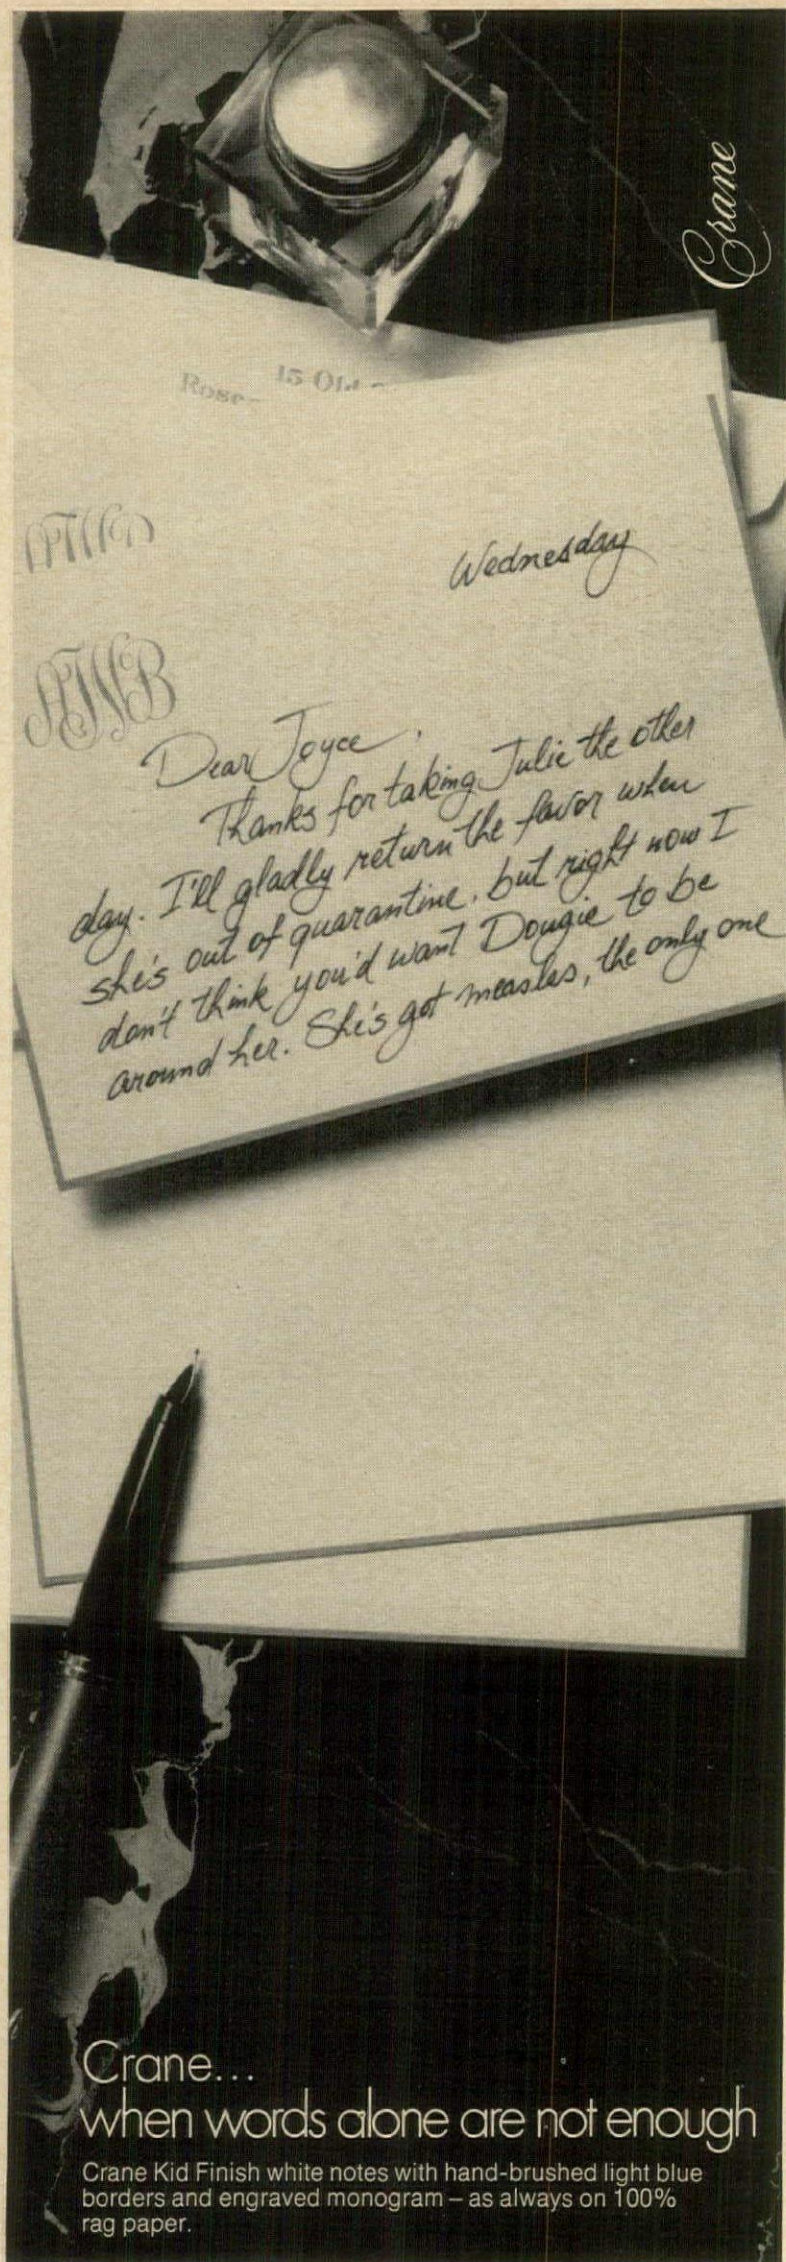 Crane
15 Old
Wednesday
AWB
Dear Joyce,
Thanks for taking Julie the other
day. I'll gladly return the favor when
she's out of quarantine, but right now I
don't think you'd want Dougie to be
around her. She's got measles, the only one
Crane...
when words alone are not enough
Crane Kid Finish white notes with hand-brushed light blue
borders and engraved monogram – as always on 100%
rag paper.